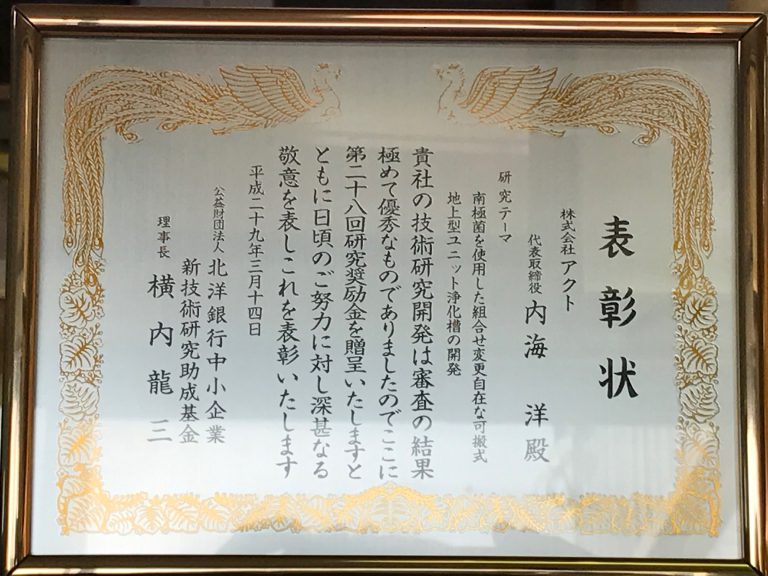 表彰状
株式会社アクト
代表取締役 内海 洋殿
研究テーマ
南極菌を使用した組合せ変更自在な可搬式
地上型ユニット浄化槽の開発
貴社の技術研究開発は審査の結果
極めて優秀なものでありましたのでここに
第二十八回研究奨励金を贈呈いたしますと
ともに日頃のご努力に対し深甚なる
敬意を表しこれを表彰いたします
平成二十九年三月十四日
公益財団法人 北洋銀行中小企業
新技術研究助成基金
理事長 横内龍三